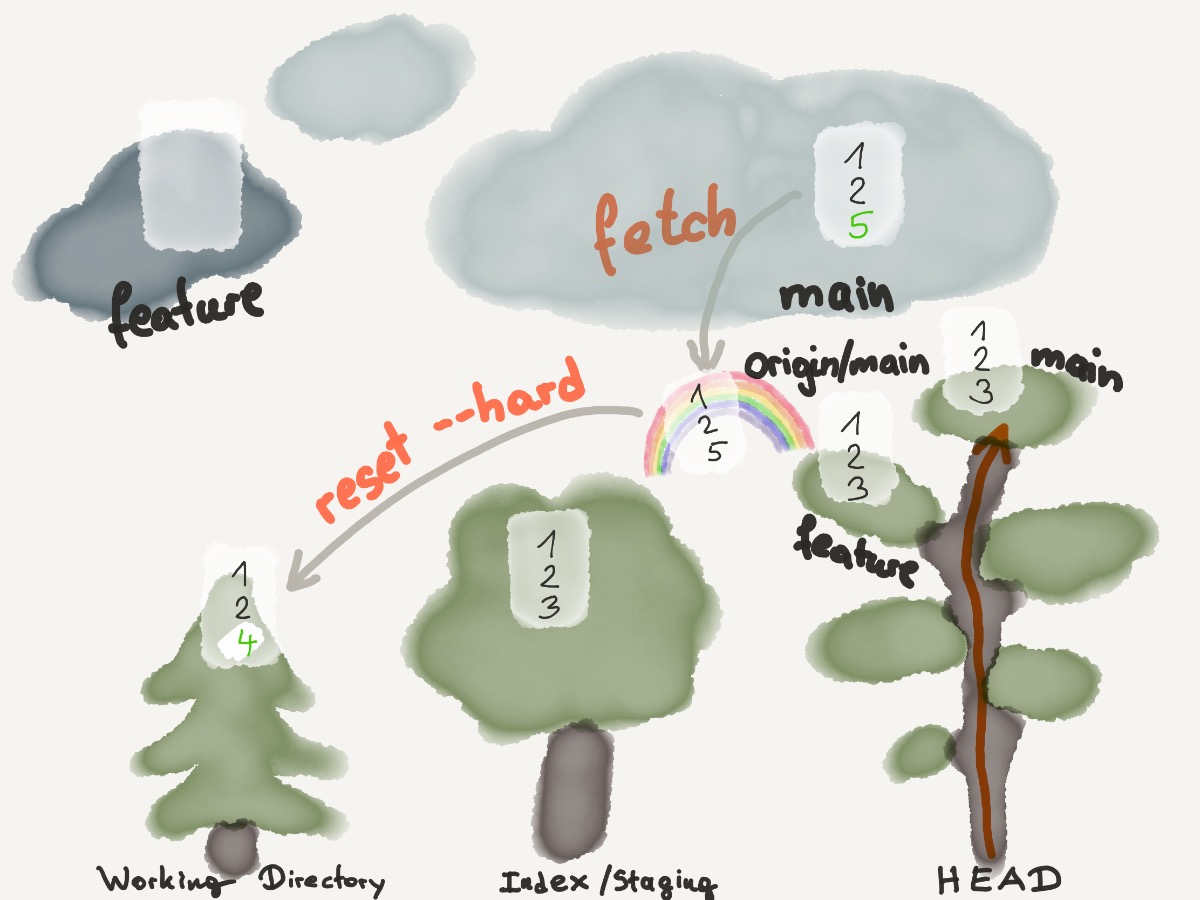 1
2
5
fetch
main
feature
origin/main
1
2
3
main
reset --hard
1
2
5
1
2
3
feature
1
2
3
1
2
4
Working Directory
Index/Staging
HEAD